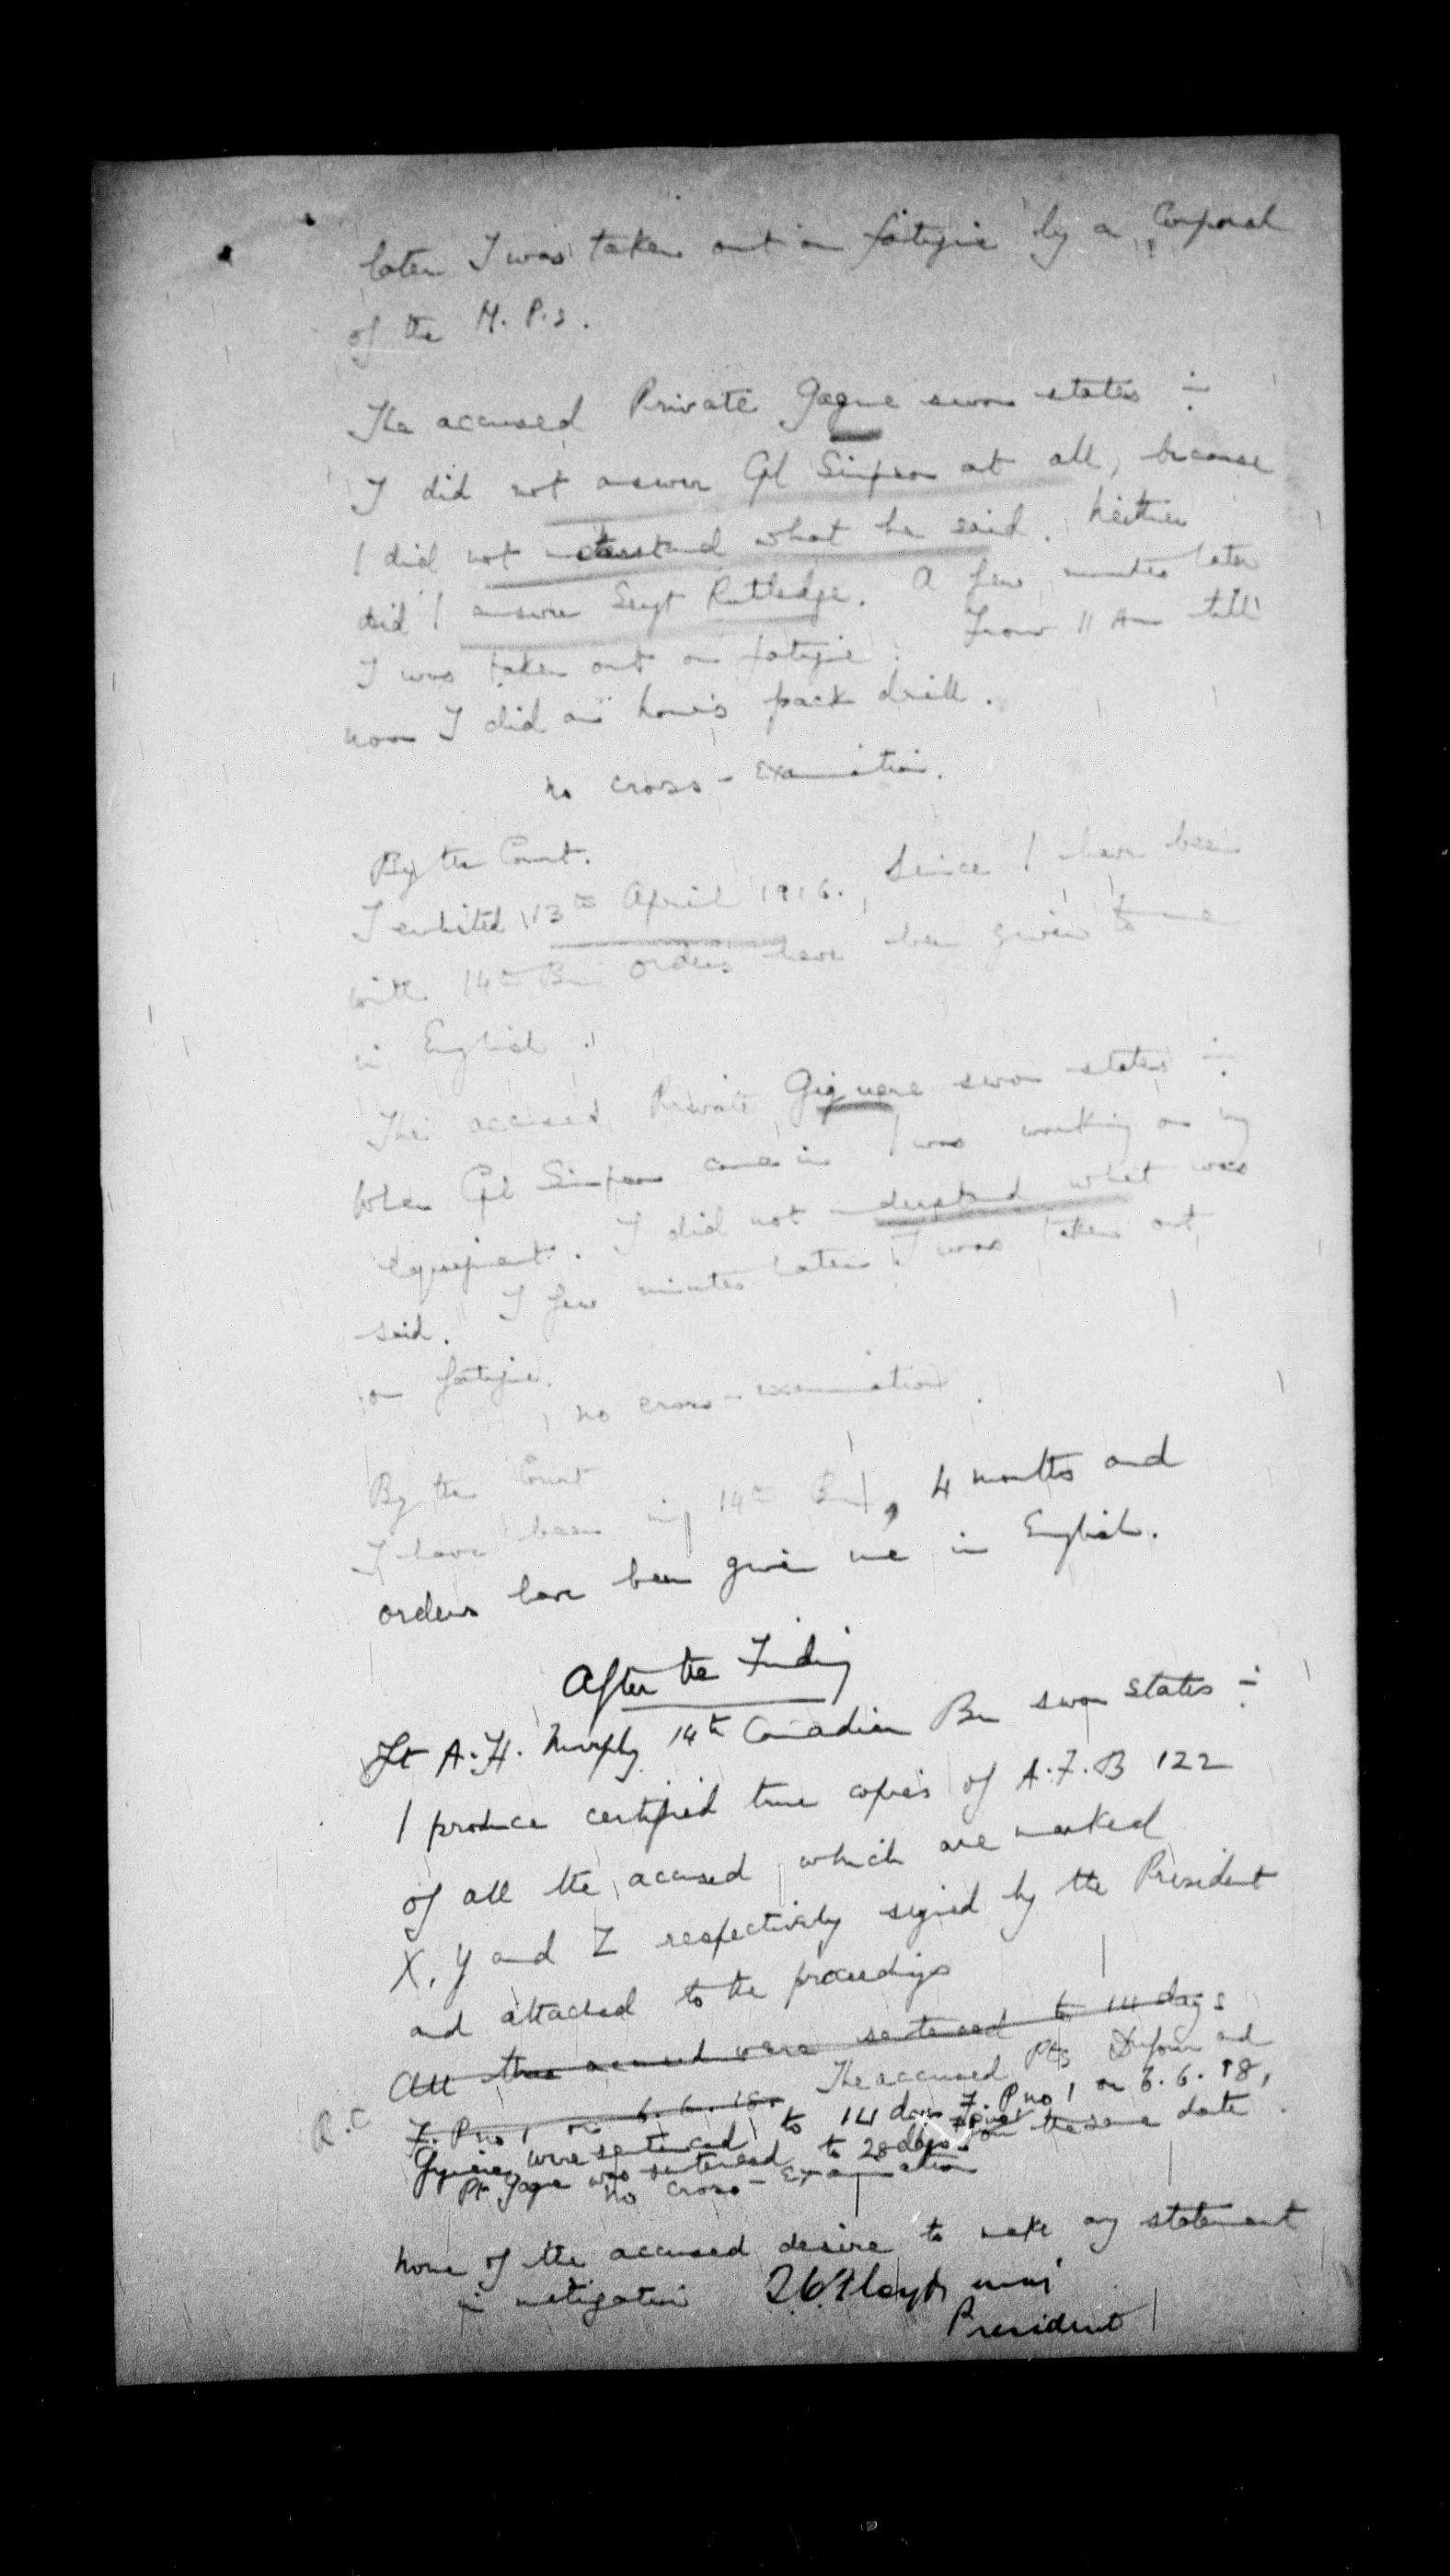 later I was taken out on fatigue by a Corporal
of the M.P.s.
The accused Private Gagne sworn states :-
I did not answer Cpl Simpson at all, because
I did not understand what he said. Neither
did I answer Sergt Rutledge. A few minutes later
I was taken out on fatigue. From 11 Am till
noon I did an hour's pack drill.
No cross-examination.
By the Court.
I enlisted 13th April 1916. Since I have been
with 14th Bn orders have been given to me
in English.
The accused Private Giguere sworn states :-
When Cpl Simpson came in I was working on my
equipment. I did not understand what was
said. I few minutes later I was taken out
on fatigue.
No cross-examination.
By the Court
I have been in 14th Bn, 4 months and
orders have been given me in English.
After the Finding
Lt A.H. Murphy 14th Canadian Bn sworn states :-
I produce certified true copies of A.F.B 122
of all the accused which are marked
X, Y and Z respectively signed by the President
and attached to the proceedings
All three accused were sentenced to 14 days
F.P no 1 on 6.6.18. The accused Pts Dufour and
Giguere were sentenced to 14 days F.P no 1 on 6.6.18,
Pte Gagne was sentenced to 28 days on the same date.
No cross-Examination
None of the accused desire to make any statement
in mitigation
President